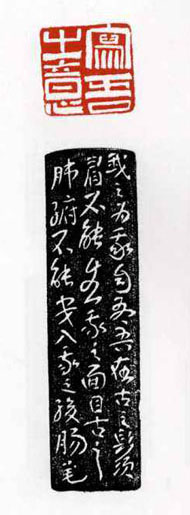 寫吾
之意
我之为我自有吾在古之鬚
眉不能生我之面目古之
肺腑不能安入我之腹腸